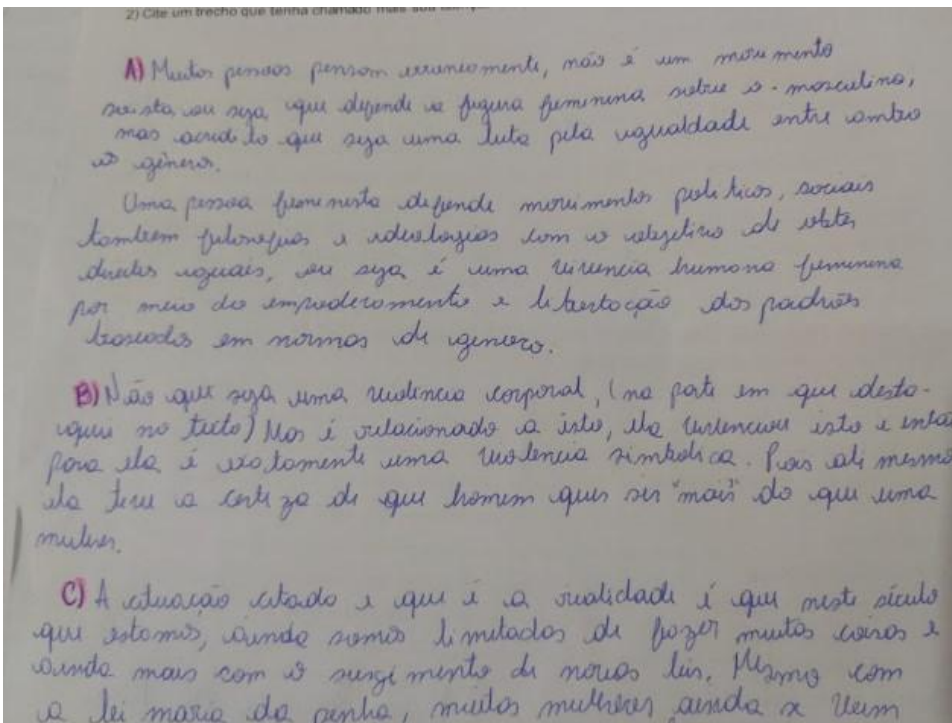 2) Cite um trecho que tenha chamado mais sua
A) Muitas pessoas pensam erroneamente, não é um movimento
sexista, ou seja, que defende a figura feminina sobre a masculina,
mas acredito que seja uma luta pela igualdade entre ambos
os gêneros.
Uma pessoa feminista defende movimentos políticos, sociais
também filosofias e ideologias com o objetivo de obter
direitos iguais, ou seja é uma vivencia humana feminina
por meio do empoderamento e libertação dos padrões
baseados em normas de genero.
B) Não que seja uma violencia corporal, (na parte em que desta-
quei no texto) Mas é relacionado a isto, ela vivenciou isto e então
para ela é exatamente uma violencia simbolica. Pois ali mesmo
ela teve a certeza de que homem quer ser "mais" do que uma
mulher.
C) A situação citada e que é a realidade é que neste século
que estamos, ainda somos limitadas de fazer muitas coisas e
ainda mais com o surgimento de novas leis. Mesmo com
a lei maria da penha, muitas mulheres ainda se veem